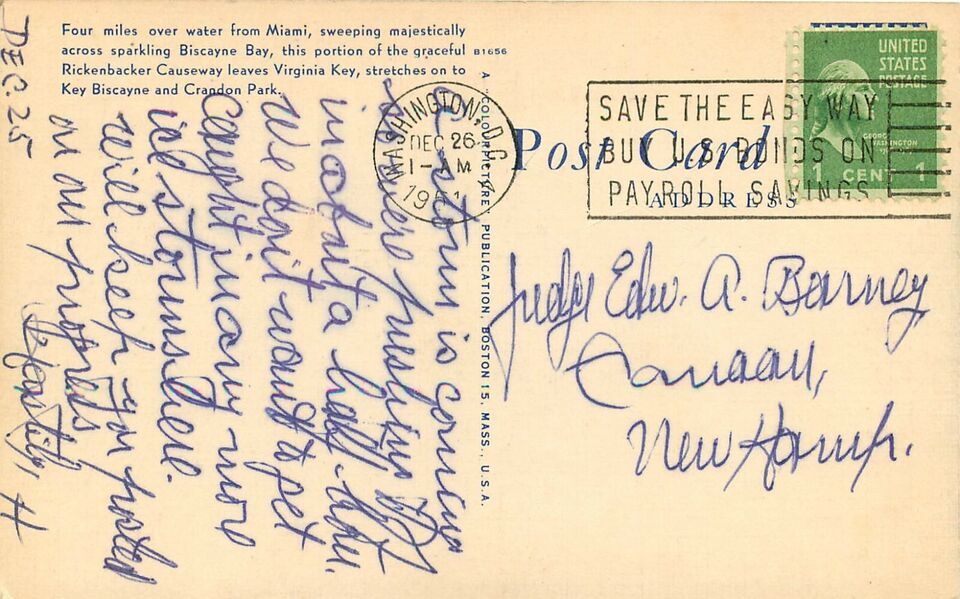 Four miles over water from Miami, sweeping majestically
across sparkling Biscayne Bay, this portion of the graceful
Rickenbacker Causeway leaves Virginia Key, stretches on to
Key Biscayne and Crandon Park.
B1656
A COLOURPICTURE PUBLICATION, BOSTON 15, MASS., U.S.A.
DEC. 25
A storm is coming
so were pushing out
in about a half hour.
We don't want to get
caught in any more
ice storms here.
Will keep you posted
on our progress
Hastily, H
WASHINGTON, D.C.
DEC 26
1-AM
1951
SAVE THE EASY WAY
BUY U.S. BONDS ON
PAYROLL SAVINGS
UNITED
STATES
POSTAGE
GEORGE
WASHINGTON
1 CENT 1
Post Card
ADDRESS
Judge Edw. A. Barney
Canaan,
New Hamp.